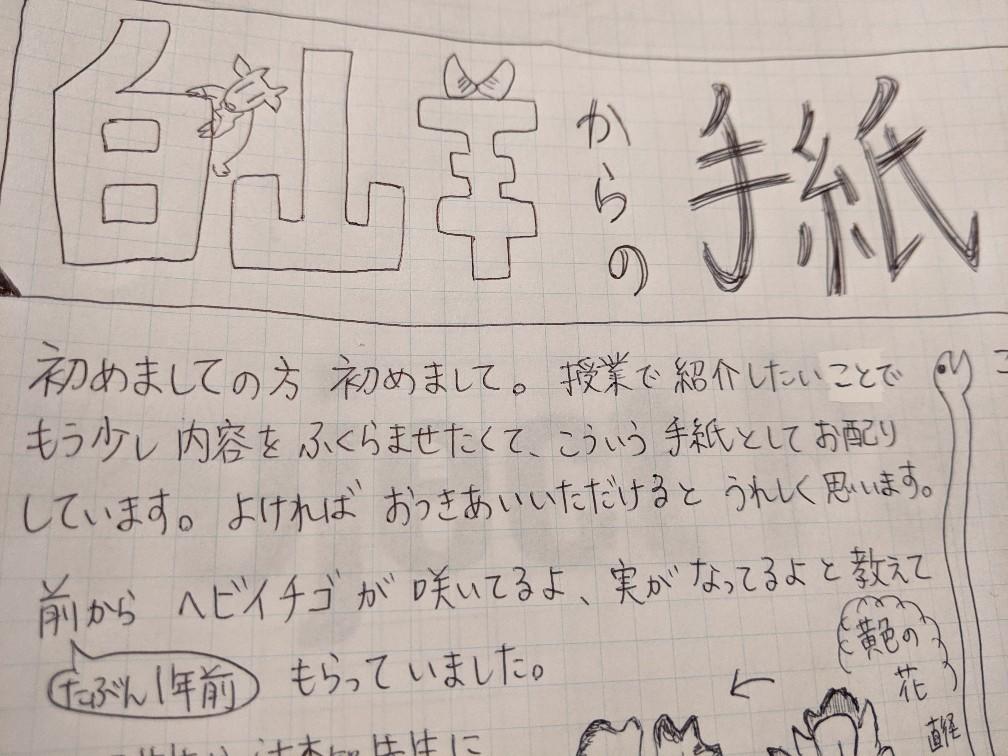 白山羊からの手紙
初めましての方 初めまして。授業で紹介したいことで
もう少し内容をふくらませたくて、こういう手紙としてお配り
しています。よければおつきあいいただけるとうれしく思います。
前からヘビイチゴが咲いてるよ、実がなってるよと教えて
たぶん1年前
もらっていました。
黄色の
花
直径
先生に